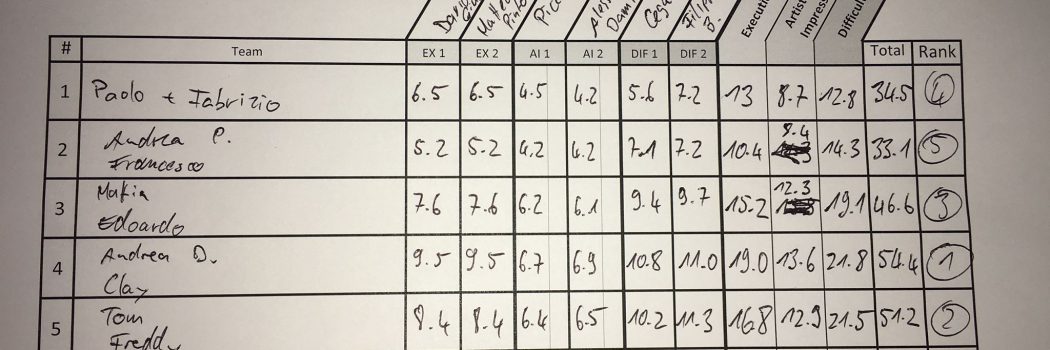 Matteo
Pinto
Executi
Artist
Impress
Difficul
# Team EX 1 EX 2 AI 1 AI 2 DIF 1 DIF 2 Total Rank
1 Paolo + Fabrizio 6.5 6.5 4.5 4.2 5.6 7.2 13 8.7 12.8 34.5 4
8.4
2 Andrea P. 5.2 5.2 4.2 4.2 7.1 7.2 10.4 14.3 33.1 5
Francesco
12.3
3 Mafia 7.6 7.6 6.2 6.1 9.4 9.7 15.2 19.1 46.6 3
Edoardo
4 Andrea D. 9.5 9.5 6.7 6.9 10.8 11.0 19.0 13.6 21.8 54.4 1
Clay
5 Tom 8.4 8.4 6.4 6.5 10.2 11.3 16.8 12.9 21.5 51.2 2
Freddy